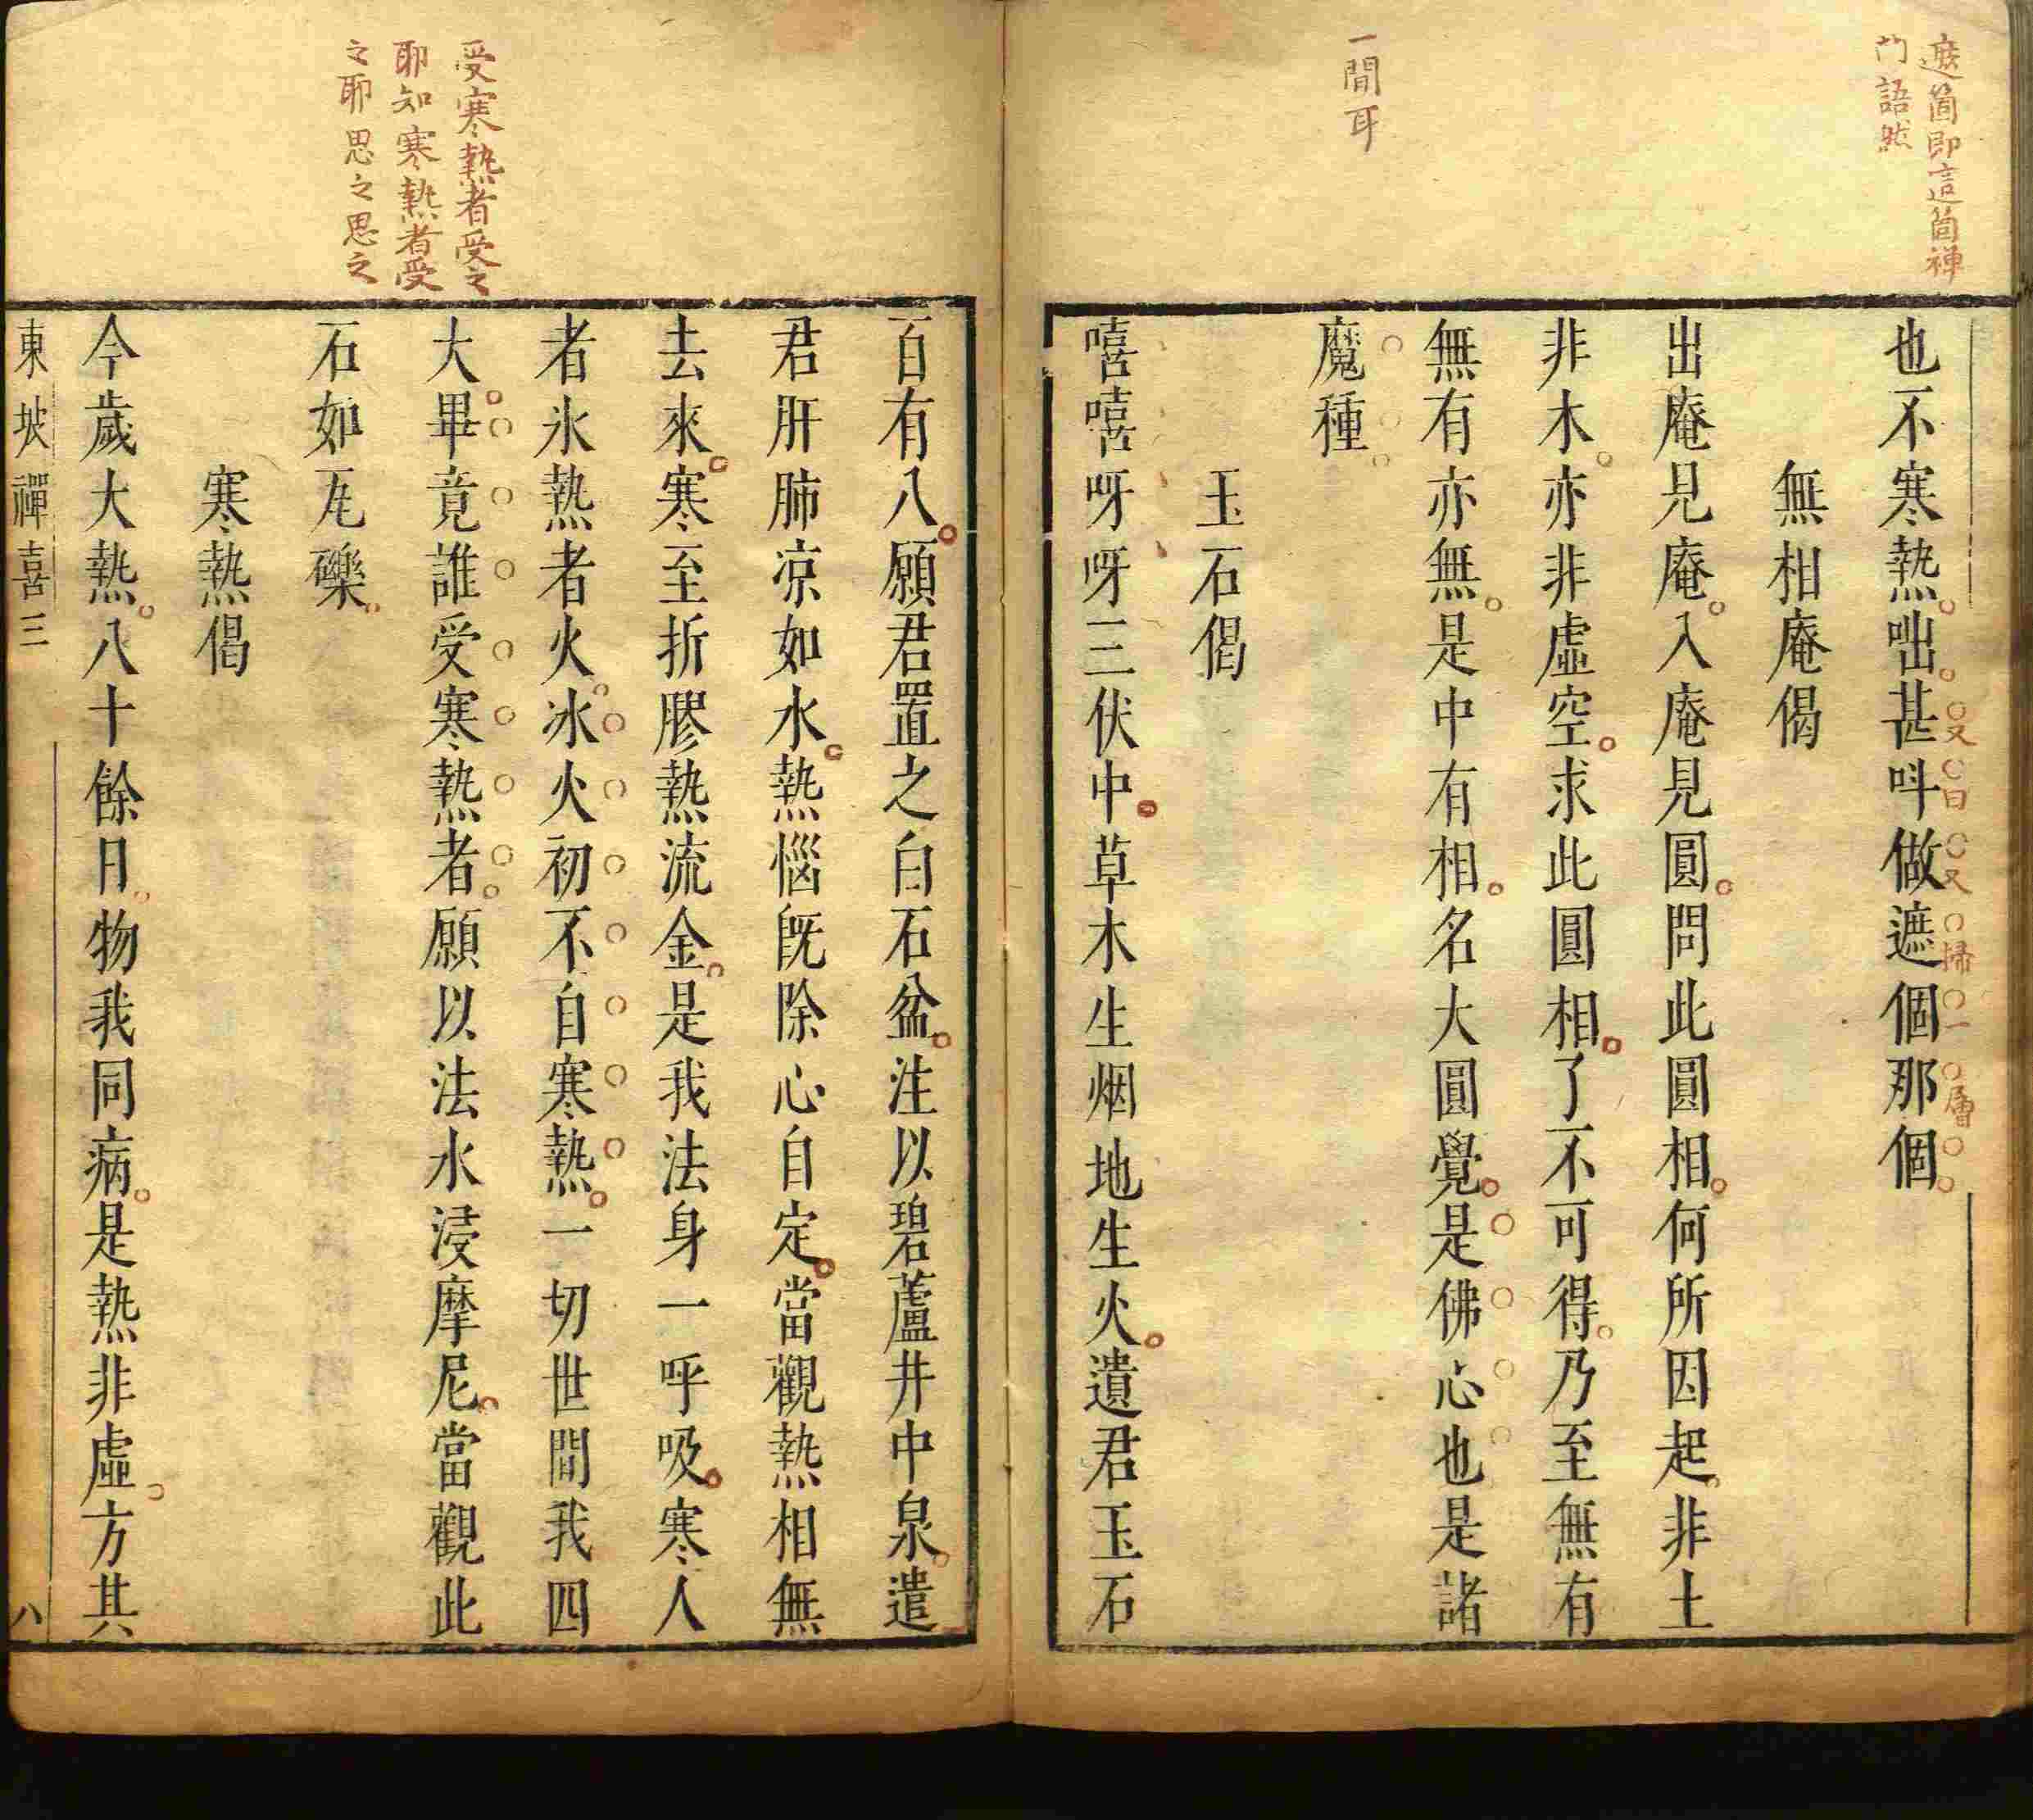 遮箇即這箇禪
門語然
一間耳
也不寒熱咄甚呌做遮個那個
又曰又掃一層
無相庵偈
出庵見庵入庵見圓問此圓相何所因起非土
非木亦非虛空求此圓相了不可得乃至無有
無有亦無是中有相名大圓覺是佛心也是諸
魔種
玉石偈
嘻嘻呀呀三伏中草木生烟地生火遺君玉石
受寒熱者受之
耶知寒熱者受
之耶思之思之
百有八願君置之白石盆注以碧蘆井中泉遣
君肝肺凉如水熱惱旣除心自定當觀熱相無
去來寒至折膠熱流金是我法身一呼吸寒人
者氷熱者火冰火初不自寒熱一切世間我四
大畢竟誰受寒熱者願以法水浸摩尼當觀此
石如瓦礫
寒熱偈
今歲大熱八十餘日物我同病是熱非虛方其
東坡禪喜三
八